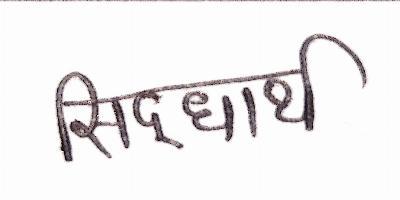 सिद्धार्थ